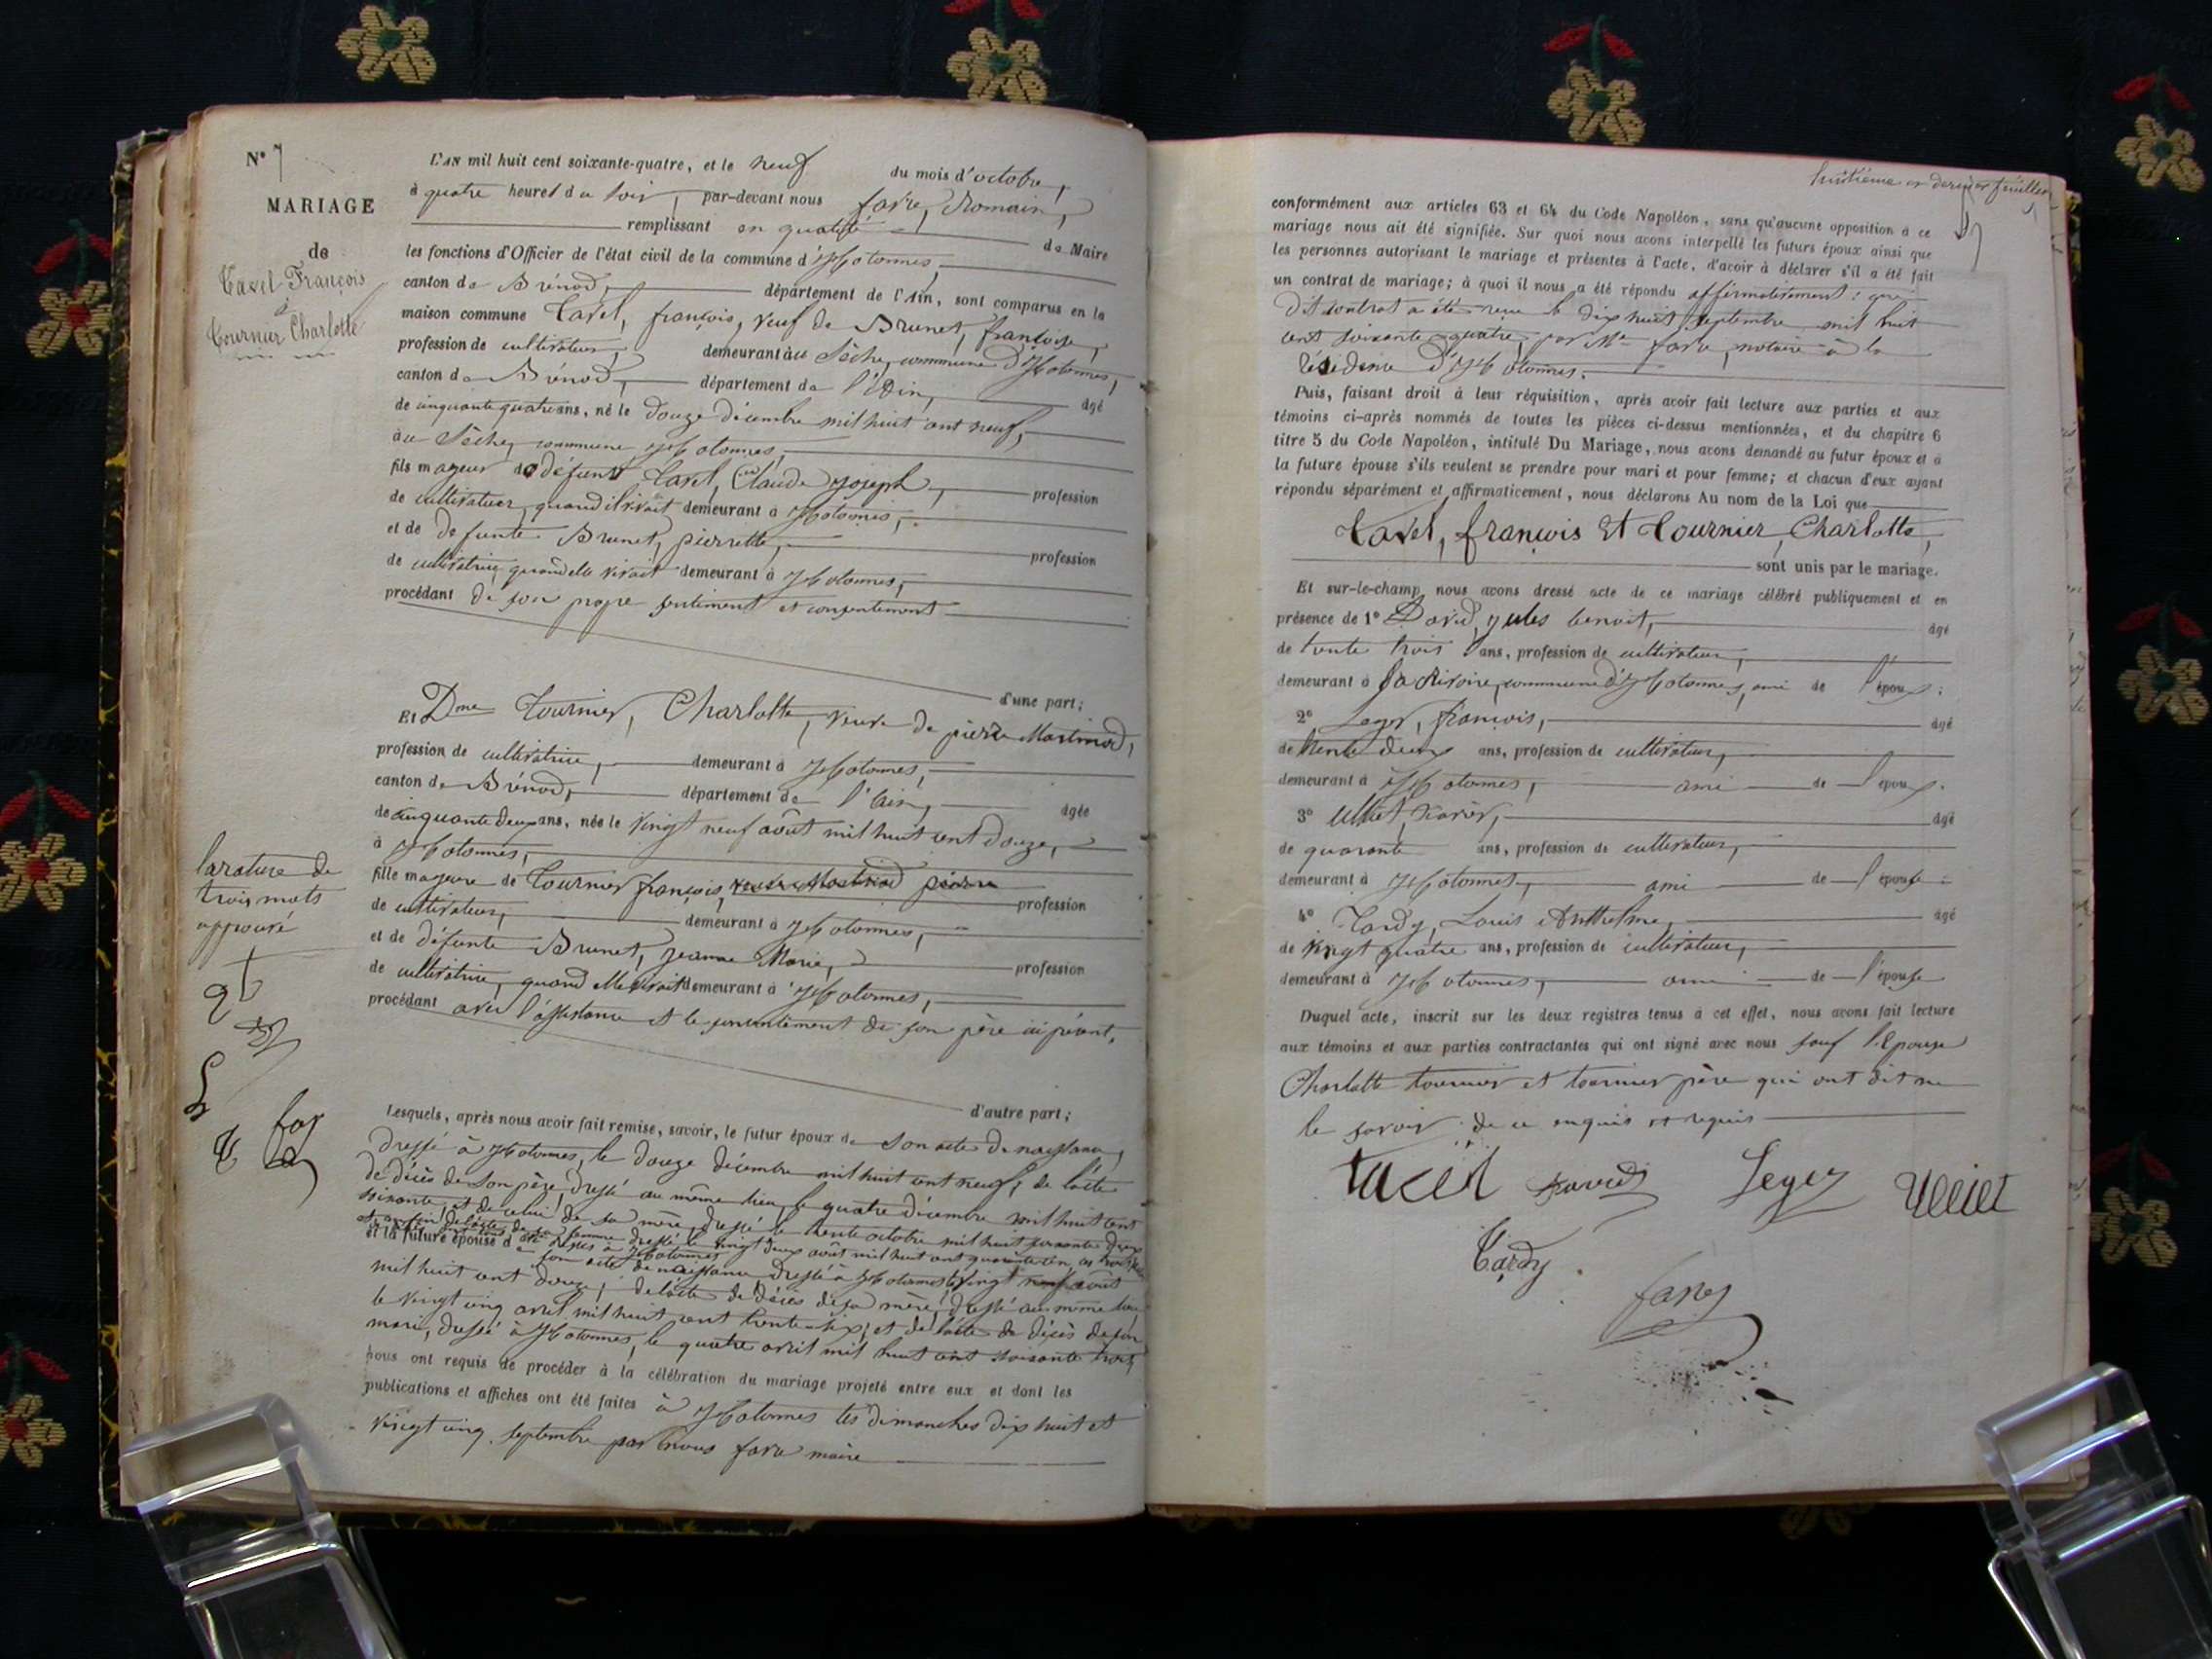 N° 7
MARIAGE
de
Tavel François
à
Tournier Charlotte
L'AN mil huit cent soixante-quatre, et le neuf du mois d'octobre,
à quatre heures du soir, par-devant nous favre, Romain,
remplissant en qualité de Maire
les fonctions d'Officier de l'état civil de la commune d'Hotonnes,
canton de Brénod, département de l'Ain, sont comparus en la
maison commune Tavel, françois, veuf de Brunet, françoise,
profession de cultivateur, demeurant au Sèche, commune d'Hotonnes,
canton de Brénod, département de l'Ain, âgé
de cinquante quatre ans, né le douze décembre mil huit cent neuf,
au Sèche, commune d'Hotonnes,
fils majeur de défunt Tavel, Claude Joseph, profession
de cultivateur, quand il vivait demeurant à Hotonnes,
et de défunte Brunet, pierrette, profession
de cultivatrice, quand elle vivait demeurant à Hotonnes,
procédant de son propre sentiment et consentement
d'une part;
Et Dme Tournier, Charlotte, veuve de pierre Martinod,
profession de cultivatrice, demeurant à Hotonnes,
canton de Brénod, département de l'Ain, âgée
de cinquante deux ans, née le vingt neuf août mil huit cent douze,
à Hotonnes,
fille majeure de Tournier françois, veuve Martinod pierre profession
de cultivateur, demeurant à Hotonnes,
et de défunte Brunet, Jeanne Marie, profession
de cultivatrice, quand elle vivait demeurant à Hotonnes,
procédant avec l'assistance et le consentement de son père ici présent,
la rature de
trois mots
approuvé
d'autre part;
Lesquels, après nous avoir fait remise, savoir, le futur époux de son acte de naissance,
dressé à Hotonnes, le douze décembre mil huit cent neuf; de l'acte
de décès de son père, dressé au même lieu, le quatre décembre mil huit cent
soixante; et de celui de sa mère, dressé le trente octobre mil huit soixante deux
et enfin de l'acte de sa femme dressé le vingt deux août mil huit cent quarante cinq
et la future épouse d son acte de naissance dressé à Hotonnes le vingt neuf août
mil huit cent douze; de l'acte de décès de sa mère, dressé au même lieu
le vingt cinq avril mil huit cent trente-six; et de l'acte de décès de son
mari, dressé à Hotonnes, le quatre avril mil huit cent soixante trois,
nous ont requis de procéder à la célébration du mariage projeté entre eux et dont les
publications et affiches ont été faites à Hotonnes les dimanches dix huit et
vingt cinq septembre par nous favre maire
huitième et dernier feuillet
conformément aux articles 63 et 64 du Code Napoléon, sans qu'aucune opposition à ce
mariage nous ait été signifiée. Sur quoi nous avons interpellé les futurs époux ainsi que
les personnes autorisant le mariage et présentes à l'acte, d'avoir à déclarer s'il a été fait
un contrat de mariage; à quoi il nous a été répondu affirmativement; que
dit contrat a été reçu le dix huit septembre mil huit
cent soixante quatre, par Me favre, notaire à la
résidence d'Hotonnes.
Puis, faisant droit à leur réquisition, après avoir fait lecture aux parties et aux
témoins ci-après nommés de toutes les pièces ci-dessus mentionnées, et du chapitre 6
titre 5 du Code Napoléon, intitulé Du Mariage, nous avons demandé au futur époux et à
la future épouse s'ils veulent se prendre pour mari et pour femme; et chacun d'eux ayant
répondu séparément et affirmativement, nous déclarons Au nom de la Loi que
Tavel, françois Et Tournier, Charlotte,
sont unis par le mariage.
Et sur-le-champ nous avons dressé acte de ce mariage célébré publiquement et en
présence de 1° David, jules benoit, âgé
de trente trois ans, profession de cultivateur,
demeurant à la Rivoire, commune d'Hotonnes, ami de l'époux;
2° Leger, françois, âgé
de trente deux ans, profession de cultivateur,
demeurant à Hotonnes, ami de l'époux.
3° Ulliet, xavier, âgé
de quarante ans, profession de cultivateur,
demeurant à Hotonnes, ami de l'épouse;
4° Tardy, Louis Anthelme, âgé
de vingt quatre ans, profession de cultivateur,
demeurant à Hotonnes, ami de l'épouse
Duquel acte, inscrit sur les deux registres tenus à cet effet, nous avons fait lecture
aux témoins et aux parties contractantes qui ont signé avec nous sauf l'Epouse
Charlotte tournier et tournier père qui ont dit ne
le savoir de ce enquis et requis
tavel David Leger Ulliet
Tardy
favre